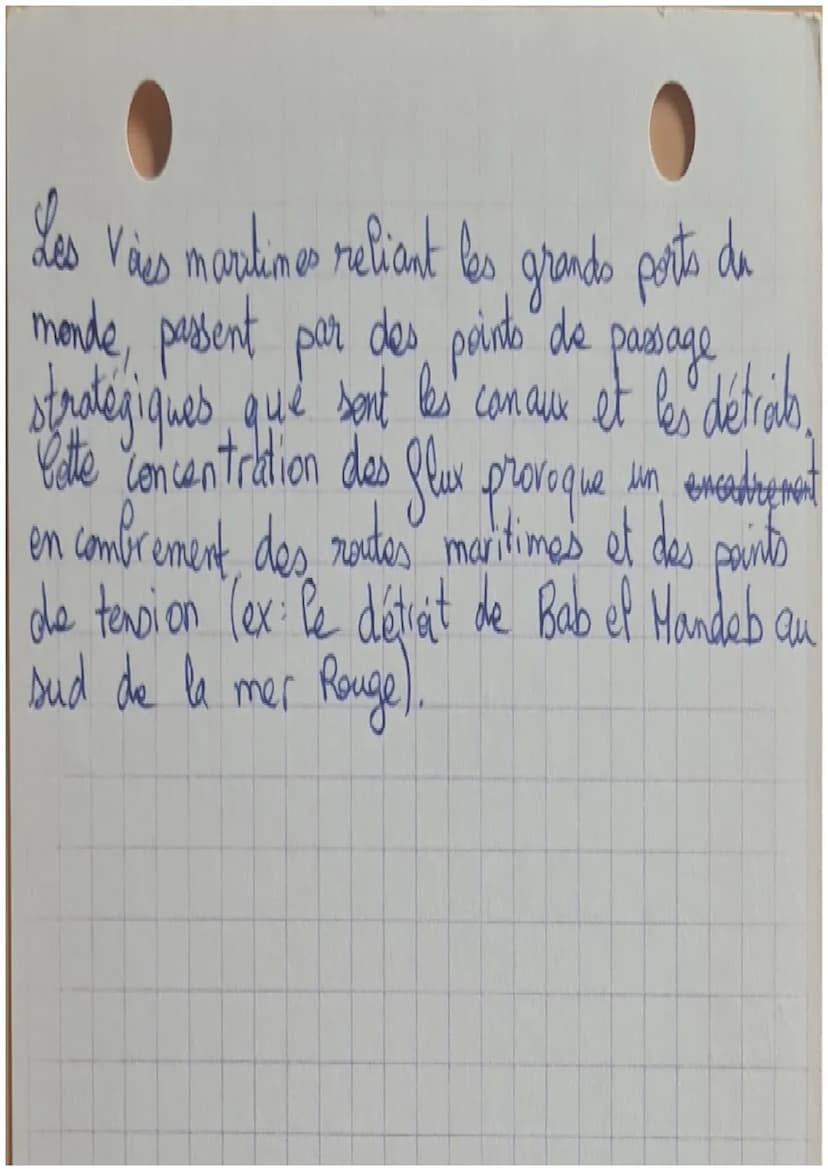 Les Voies maritimes reliant les grands ports du
monde, passent par des points de passage
stratégiques que sont les canaux et les détroits.
Cette concentration des flux provoque un encadrement
encombrement des routes maritimes et des points
de tension (ex: le détroit de Bab el Mandeb au
sud de la mer Rouge).